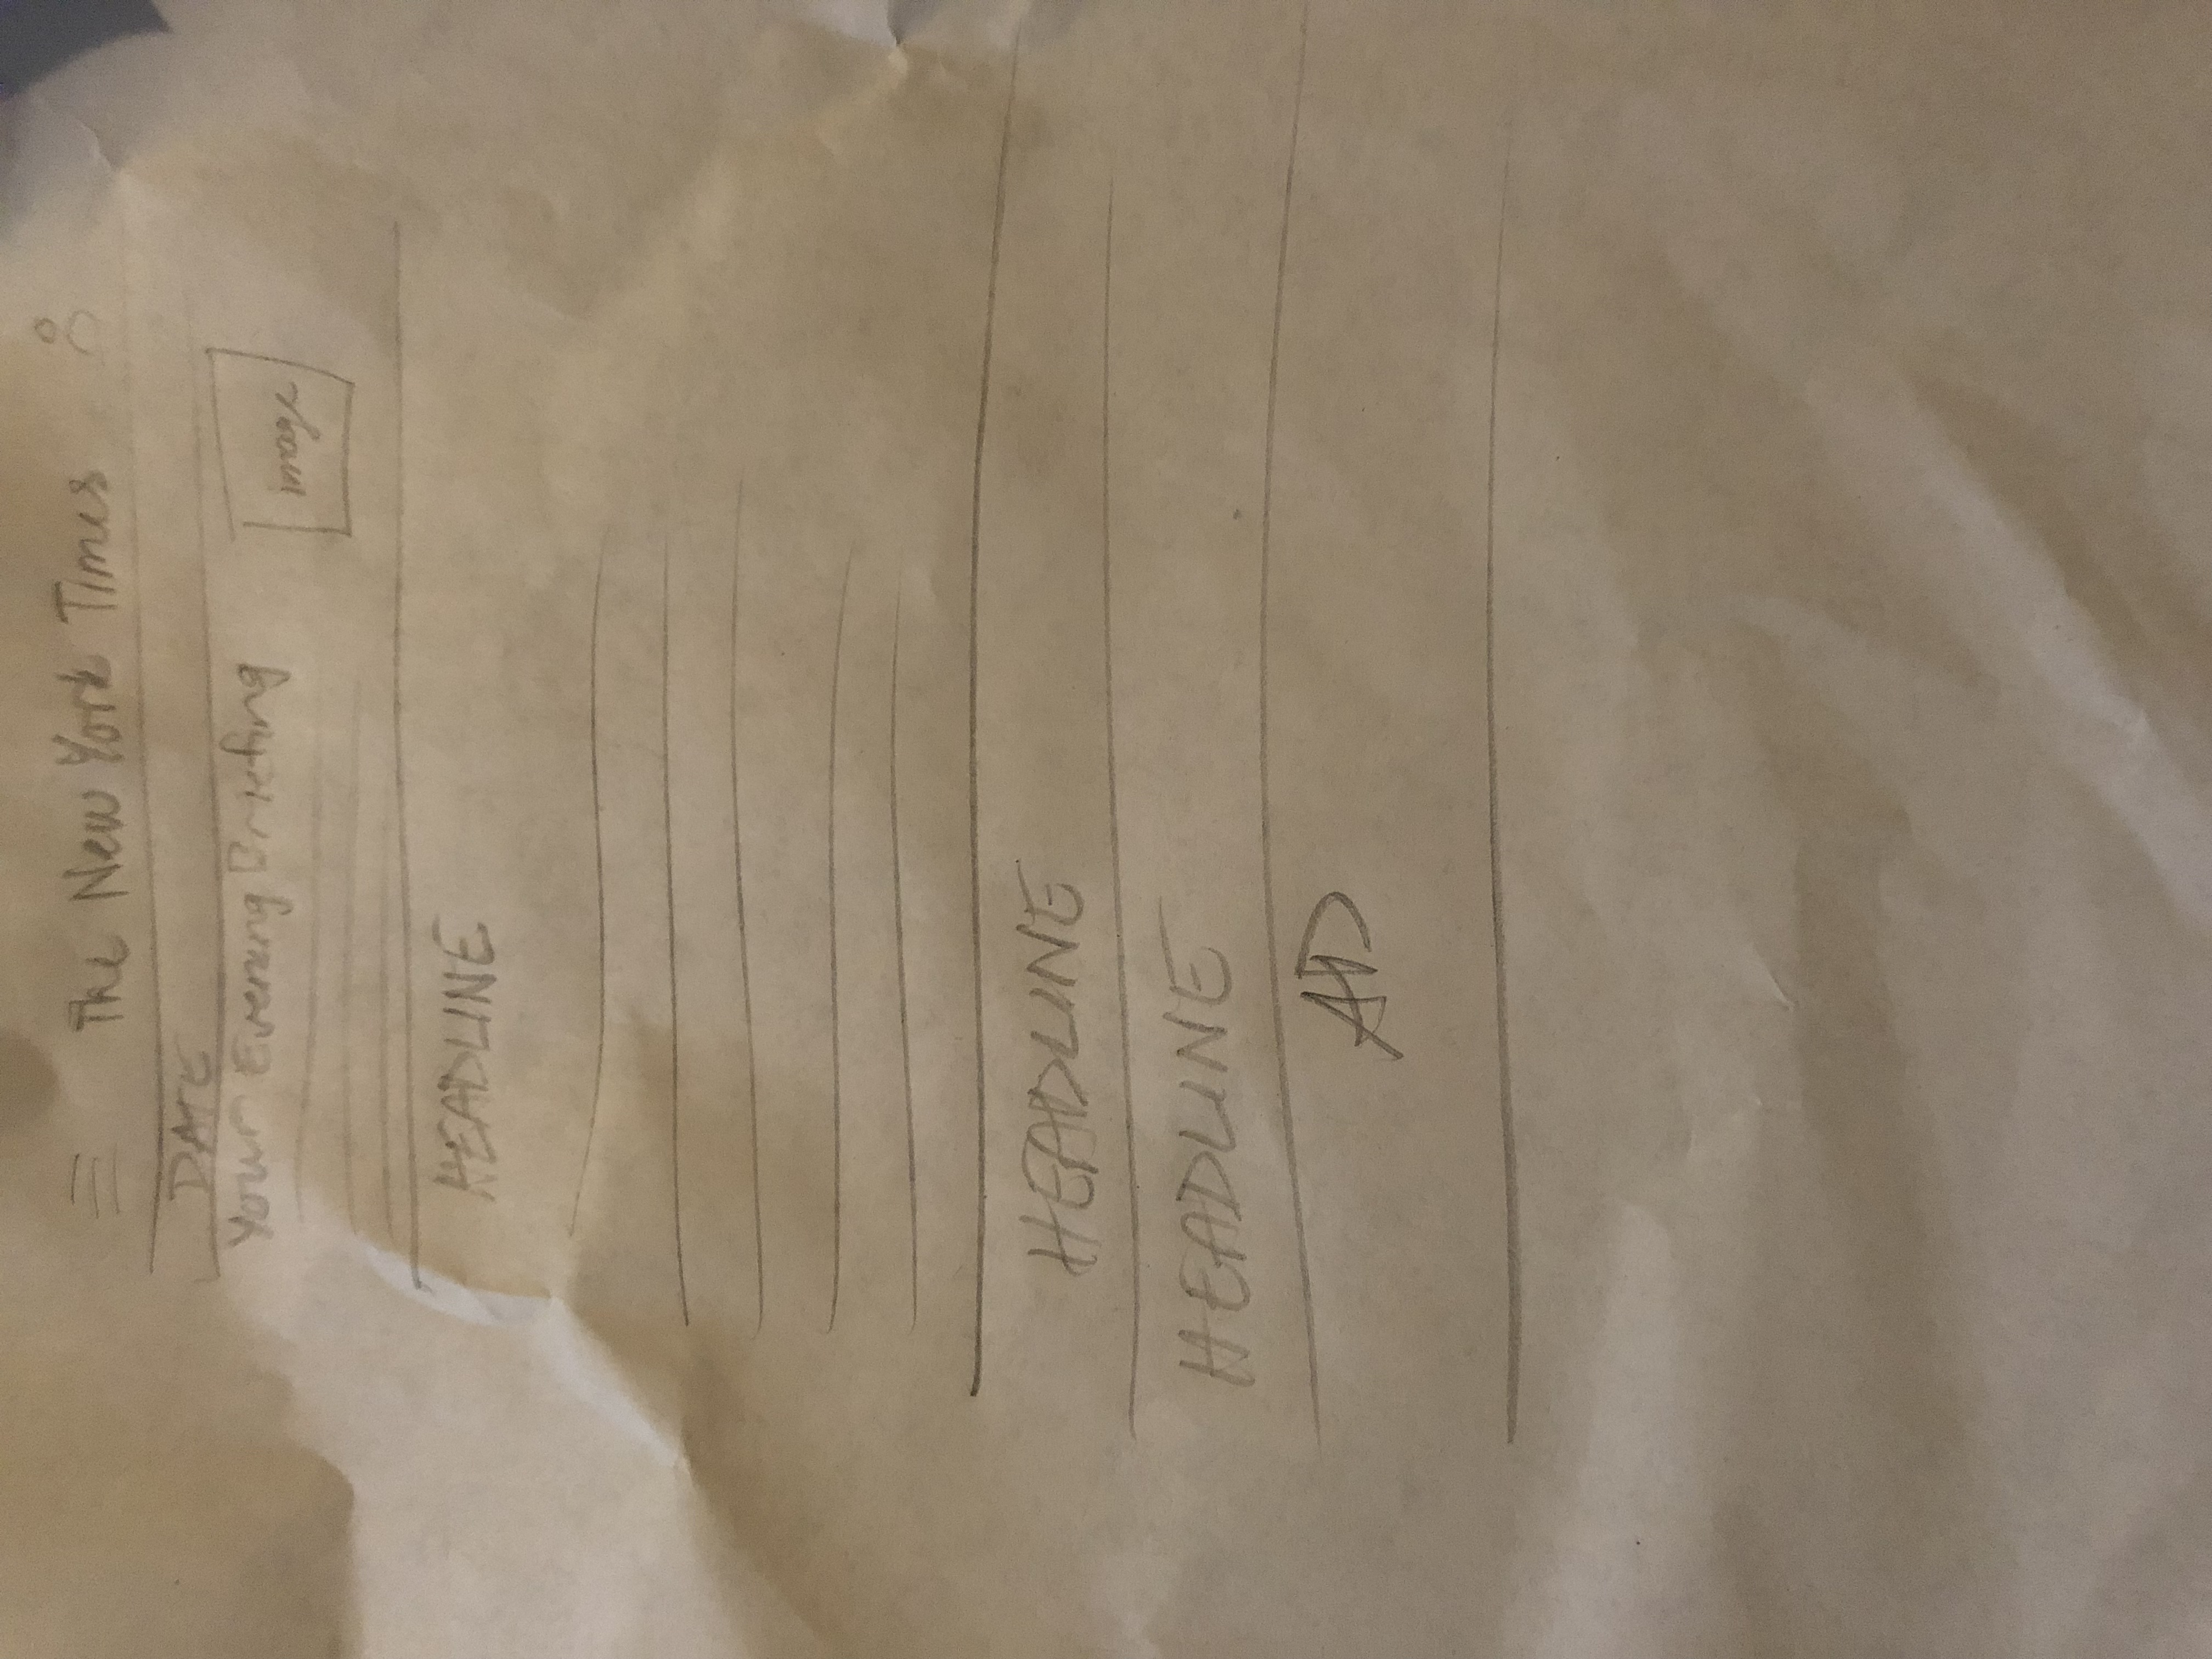 The New York Times
DATE
Your Evening Briefing
image
HEADLINE
HEADLINE
HEADLINE
AD